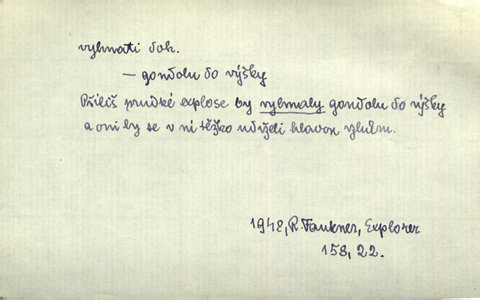 vyhnati dok.
— gondolu do výšky
Příliš prudké explose by vyhnaly gondolu do výšky
a oni by se v ní těžko udrželi hlavou vzhůru.
1948, R. Faukner, Explorer
158, 22.